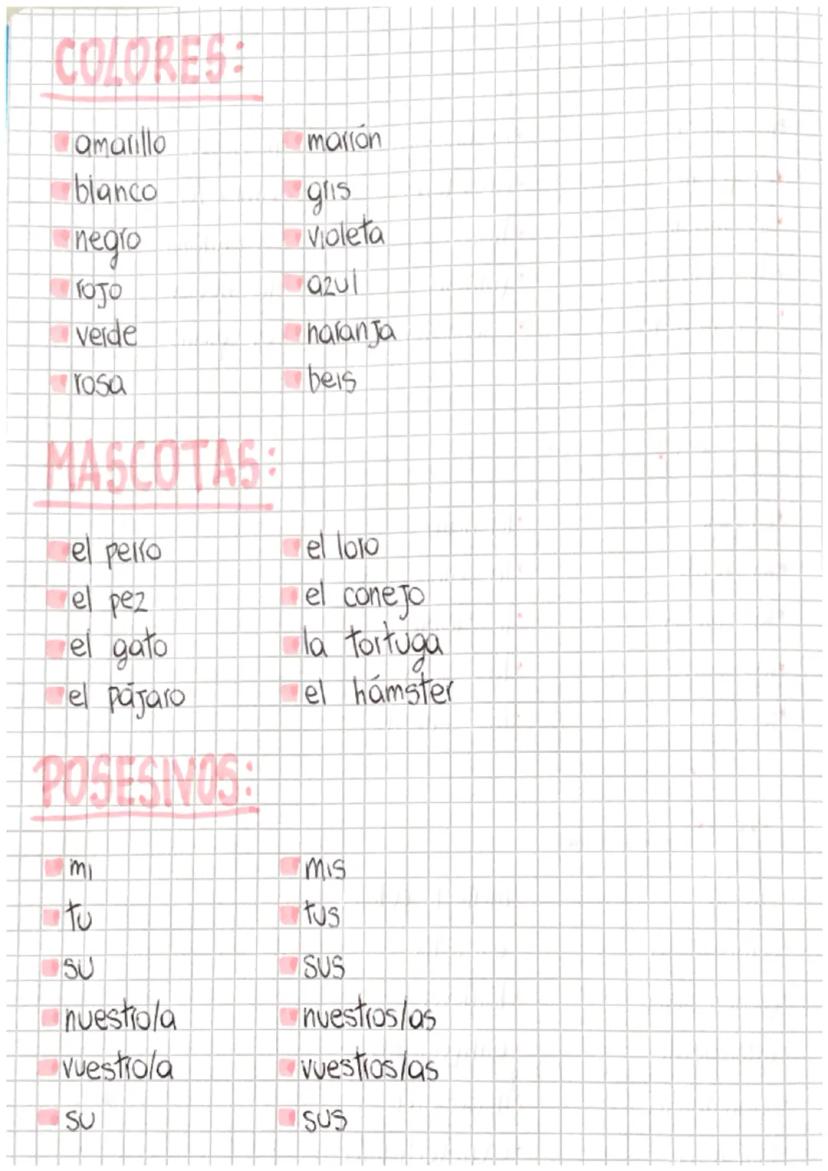 COLORES:
amarillo
blanco
negro
rojo
verde
rosa
marrón
gris
violeta
azul
naranja
beis
MASCOTAS:
el perro
el pez
el gato
el pájaro
el loro
el conejo
la tortuga
el hámster
POSESIVOS:
mi
tu
su
nuestro/a
vuestro/a
su
mis
tus
sus
nuestros/as
vuestros/as
sus